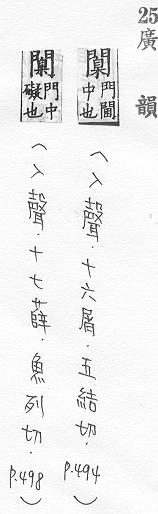 25廣韻
闑門閫中也
（入聲．十六屑．五結切．P.494）
闑門中礙也
（入聲．十七薛．魚列切．P.498）